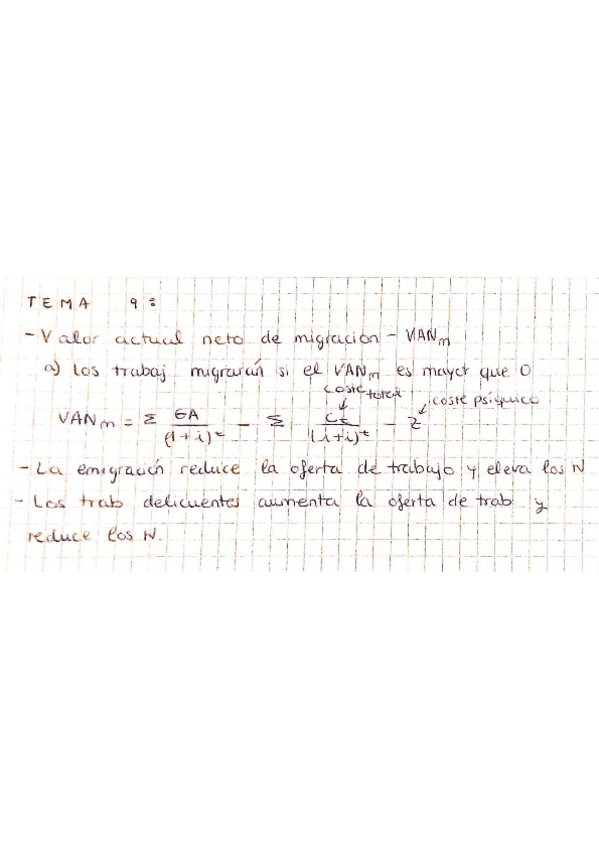 TEMA 9:
- Valor actual neto de migración - VANm
a) Los trabaj migrarán si el VANm es mayor que 0
coste total
coste psíquico
VANm = Σ GA/(1+i)^t - Σ Ct/(1+i)^t - Z
- La emigración reduce la oferta de trabajo y eleva los W
- Los trab delicuentes aumenta la oferta de trab y
reduce los W.